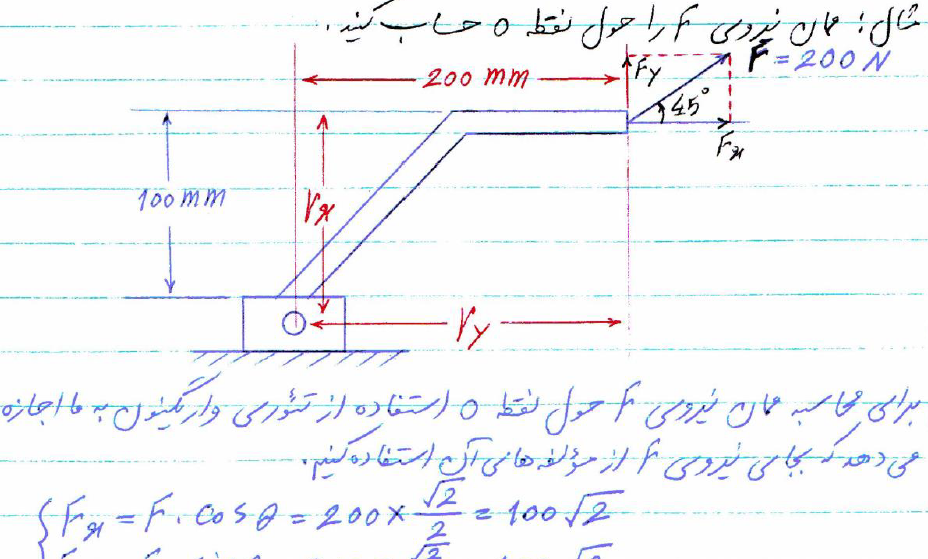 مثال: ممان نیروی F را حول نقطه O حساب کنید.
200 mm
Fy
F = 200 N
45°
Fx
100 mm
rx
ry
برای محاسبه ممان نیروی F حول نقطه O استفاده از تئوری وارینگتون به ما اجازه
می دهد که بجای نیروی F از مؤلفه های آن استفاده کنیم.
Fx = F . cos θ = 200 × √2/2 = 100 √2